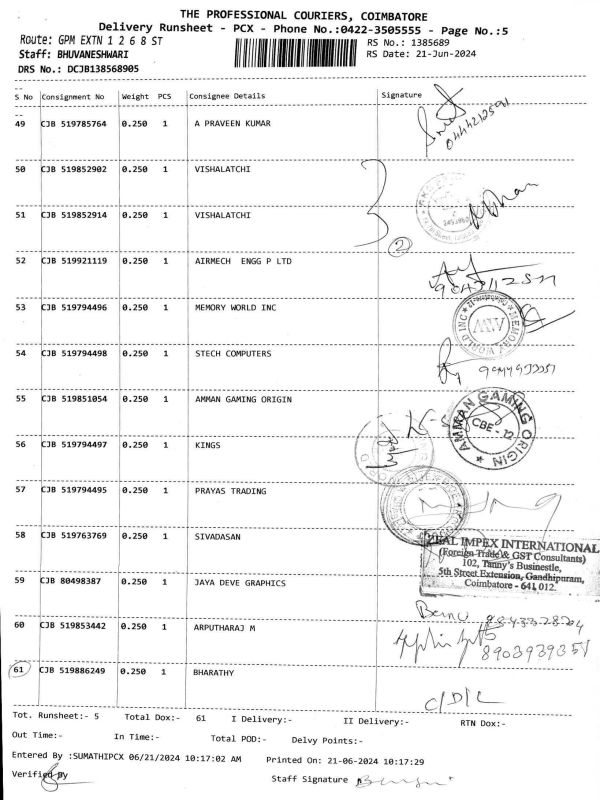 THE PROFESSIONAL COURIERS, COIMBATORE
Delivery Runsheet - PCX - Phone No.:0422-3505555 - Page No.:5
Route: GPM EXTN 1 2 6 8 ST
RS No.: 1385689
Staff: BHUVANESHWARI
RS Date: 21-Jun-2024
DRS No.: DCJB138568905
S No Consignment No Weight PCS Consignee Details Signature
49 CJB 519785764 0.250 1 A PRAVEEN KUMAR
50 CJB 519852902 0.250 1 VISHALATCHI
51 CJB 519852914 0.250 1 VISHALATCHI
2
52 CJB 519921119 0.250 1 AIRMECH ENGG P LTD
53 CJB 519794496 0.250 1 MEMORY WORLD INC
MEMORY WORLD INC
54 CJB 519794498 0.250 1 STECH COMPUTERS
55 CJB 519851054 0.250 1 AMMAN GAMING ORIGIN
AMMAN GAMING ORIGIN
CBE - 12
56 CJB 519794497 0.250 1 KINGS
57 CJB 519794495 0.250 1 PRAYAS TRADING
58 CJB 519763769 0.250 1 SIVADASAN
IMPEX INTERNATIONAL
(Foreign Trade & GST Consultants)
102, Tanny's Businestle,
5th Street Extension, Gandhipuram,
Coimbatore - 641 012.
59 CJB 80498387 0.250 1 JAYA DEVE GRAPHICS
60 CJB 519853442 0.250 1 ARPUTHARAJ M
61 CJB 519886249 0.250 1 BHARATHY
C/D/L
Tot. Runsheet:- 5 Total Dox:- 61 I Delivery:- II Delivery:- RTN Dox:-
Out Time:- In Time:- Total POD:- Delvy Points:-
Entered By :SUMATHIPCX 06/21/2024 10:17:02 AM Printed On: 21-06-2024 10:17:29
Verified By Staff Signature